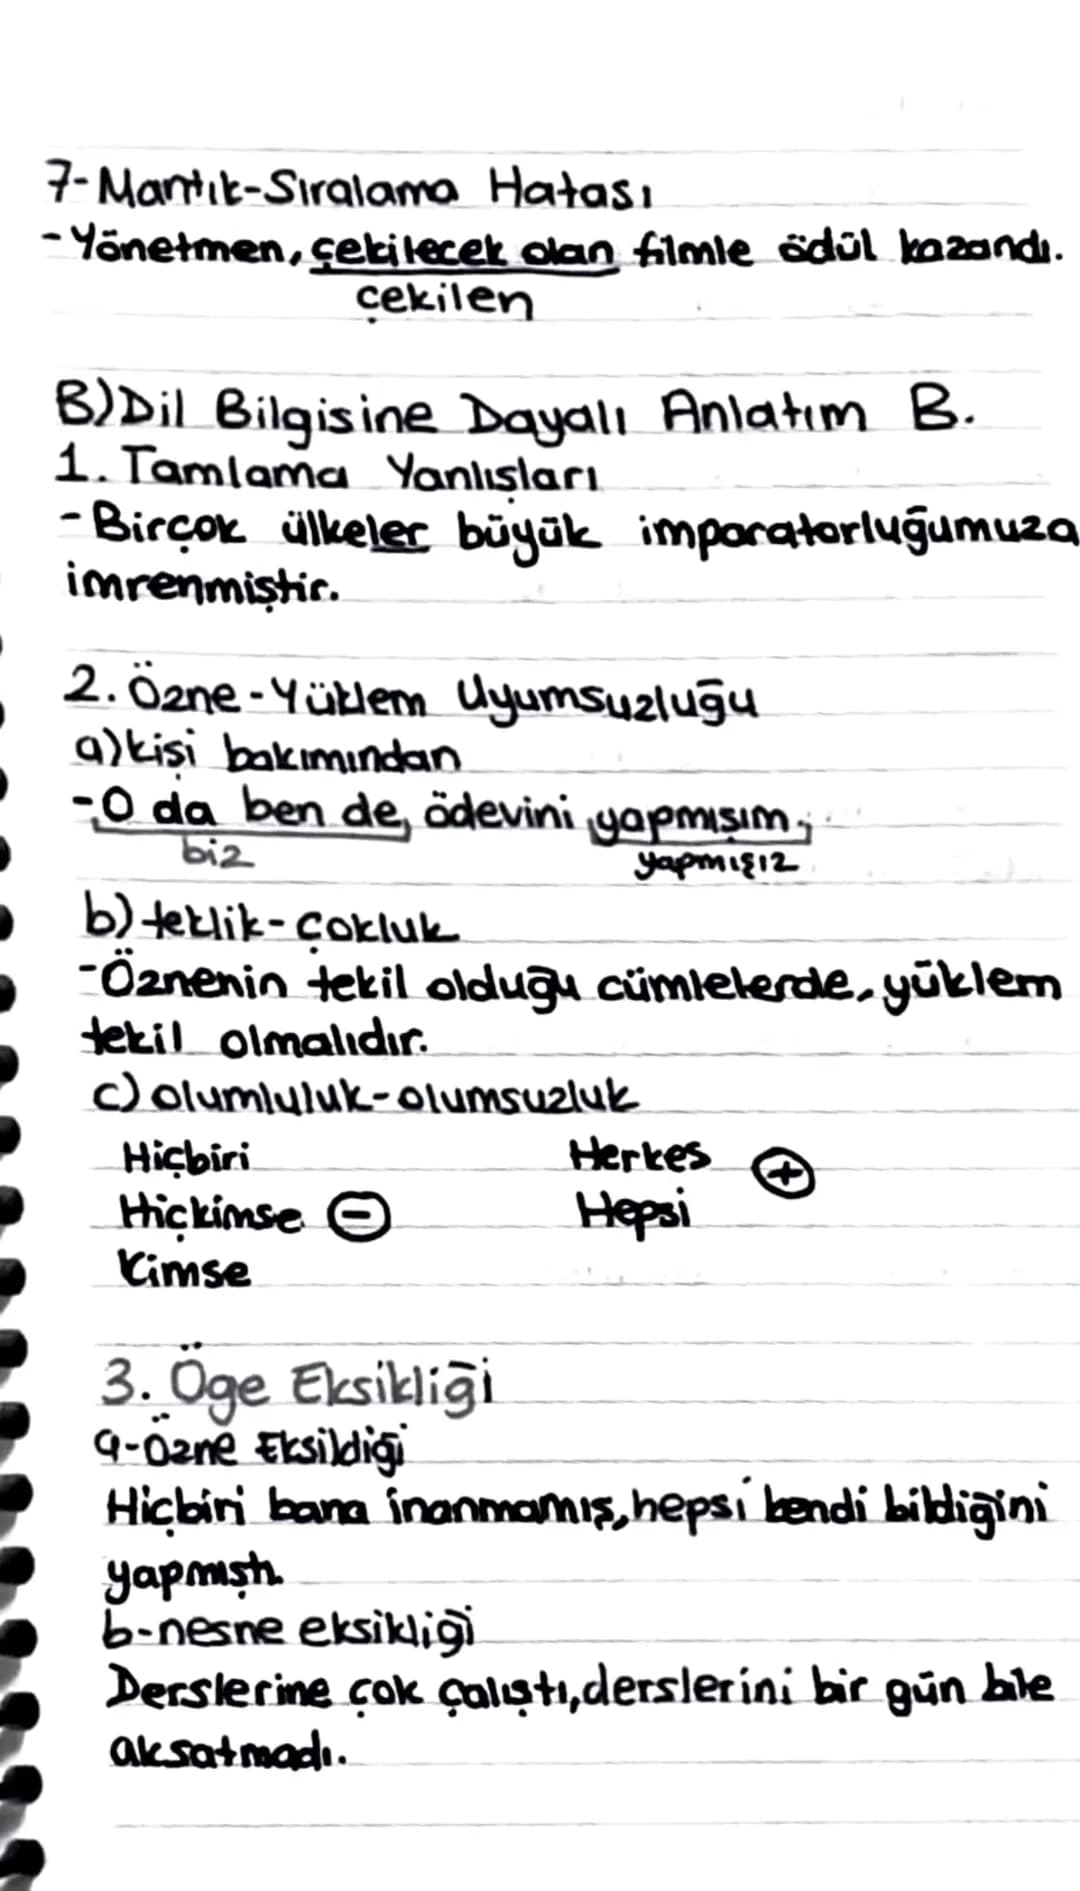 7-Mantık-Sıralama Hatası
-Yönetmen, çekilecek olan filmle ödül kazandı.
çekilen
B) Dil Bilgisine Dayalı Anlatım B.
1. Tamlama Yanlışları
-Birçok ülkeler büyük imparatorluğumuza
imrenmiştir.
2. Özne-Yüklem Uyumsuzluğu
a) kişi bakımından
-O da ben de, ödevini yapmışım.
biz yapmışız
b) teklik-çokluk
-Öznenin tekil olduğu cümlelerde, yüklem
tekil olmalıdır.
c) olumluluk-olumsuzluk
Hiçbiri Herkes +
Hiçkimse - Hepsi
Kimse
3. Öge Eksikliği
a-Özne Eksildiği
Hiçbiri bana inanmamış, hepsi kendi bildiğini
yapmıştı.
b-nesne eksikliği
Derslerine çok çalıştı, derslerini bir gün bile
aksatmadı.